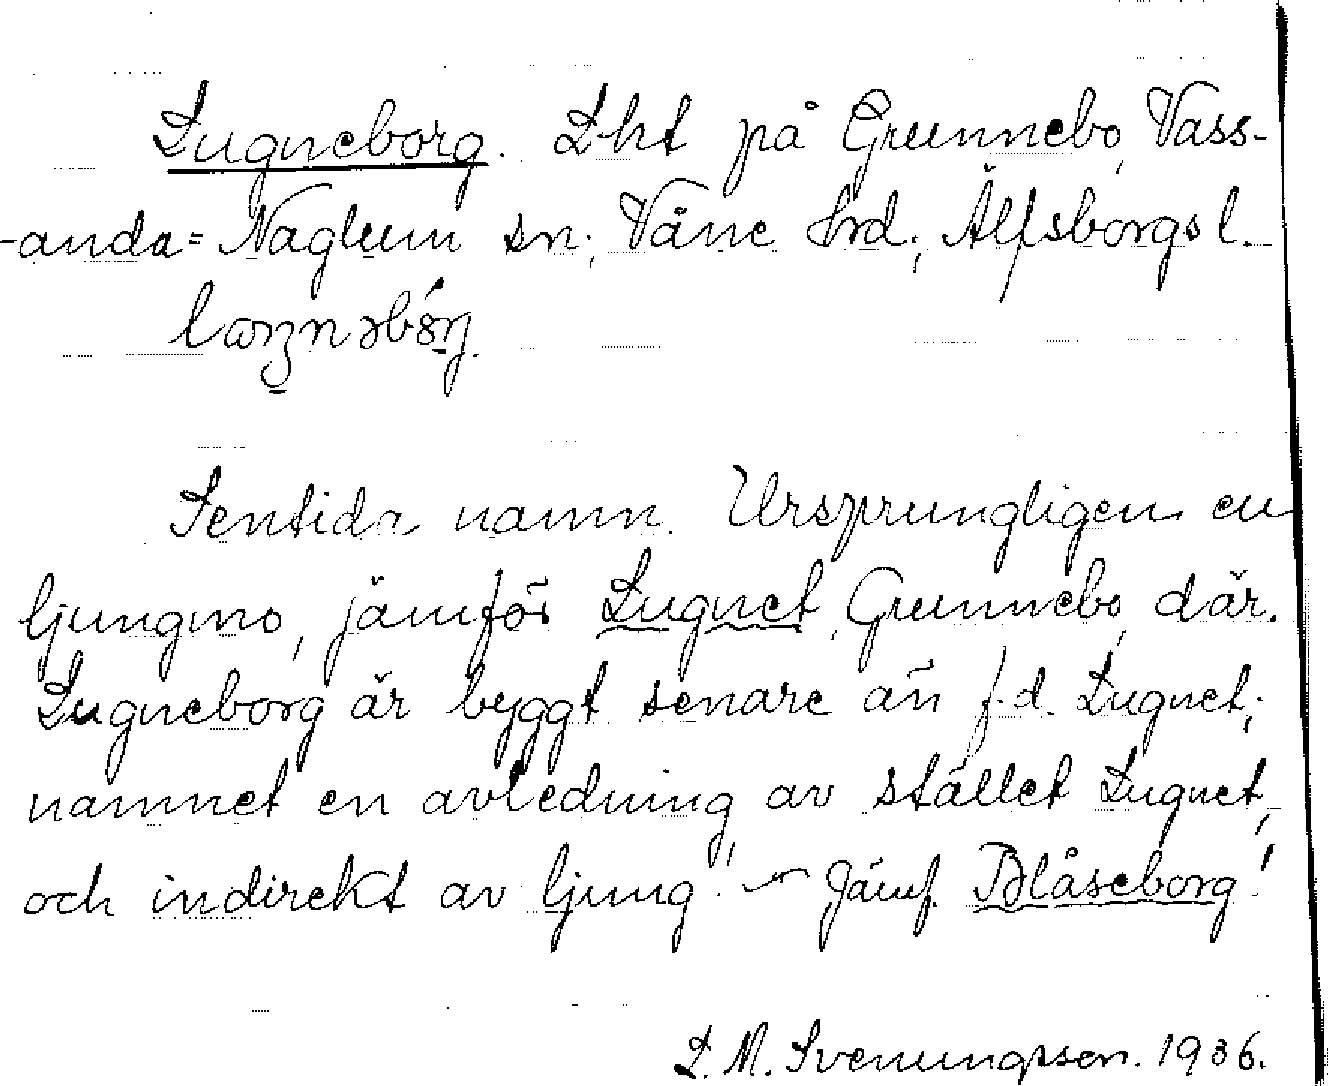 Lugneborg. L-ht på Grunnebo, Vass-
-anda=Naglum sn; Våne hrd; Älfsborgs l.
Sentida namn. Ursprungligen en
ljungmo, jämför Lugnet, Grunnebo, där.
Lugneborg är byggt senare än f.d. Lugnet;
namnet en avledning av stället Lugnet,
och indirekt av ljung! ~ Jämf. Blåseborg!
L. M. Svenungsson. 1936.